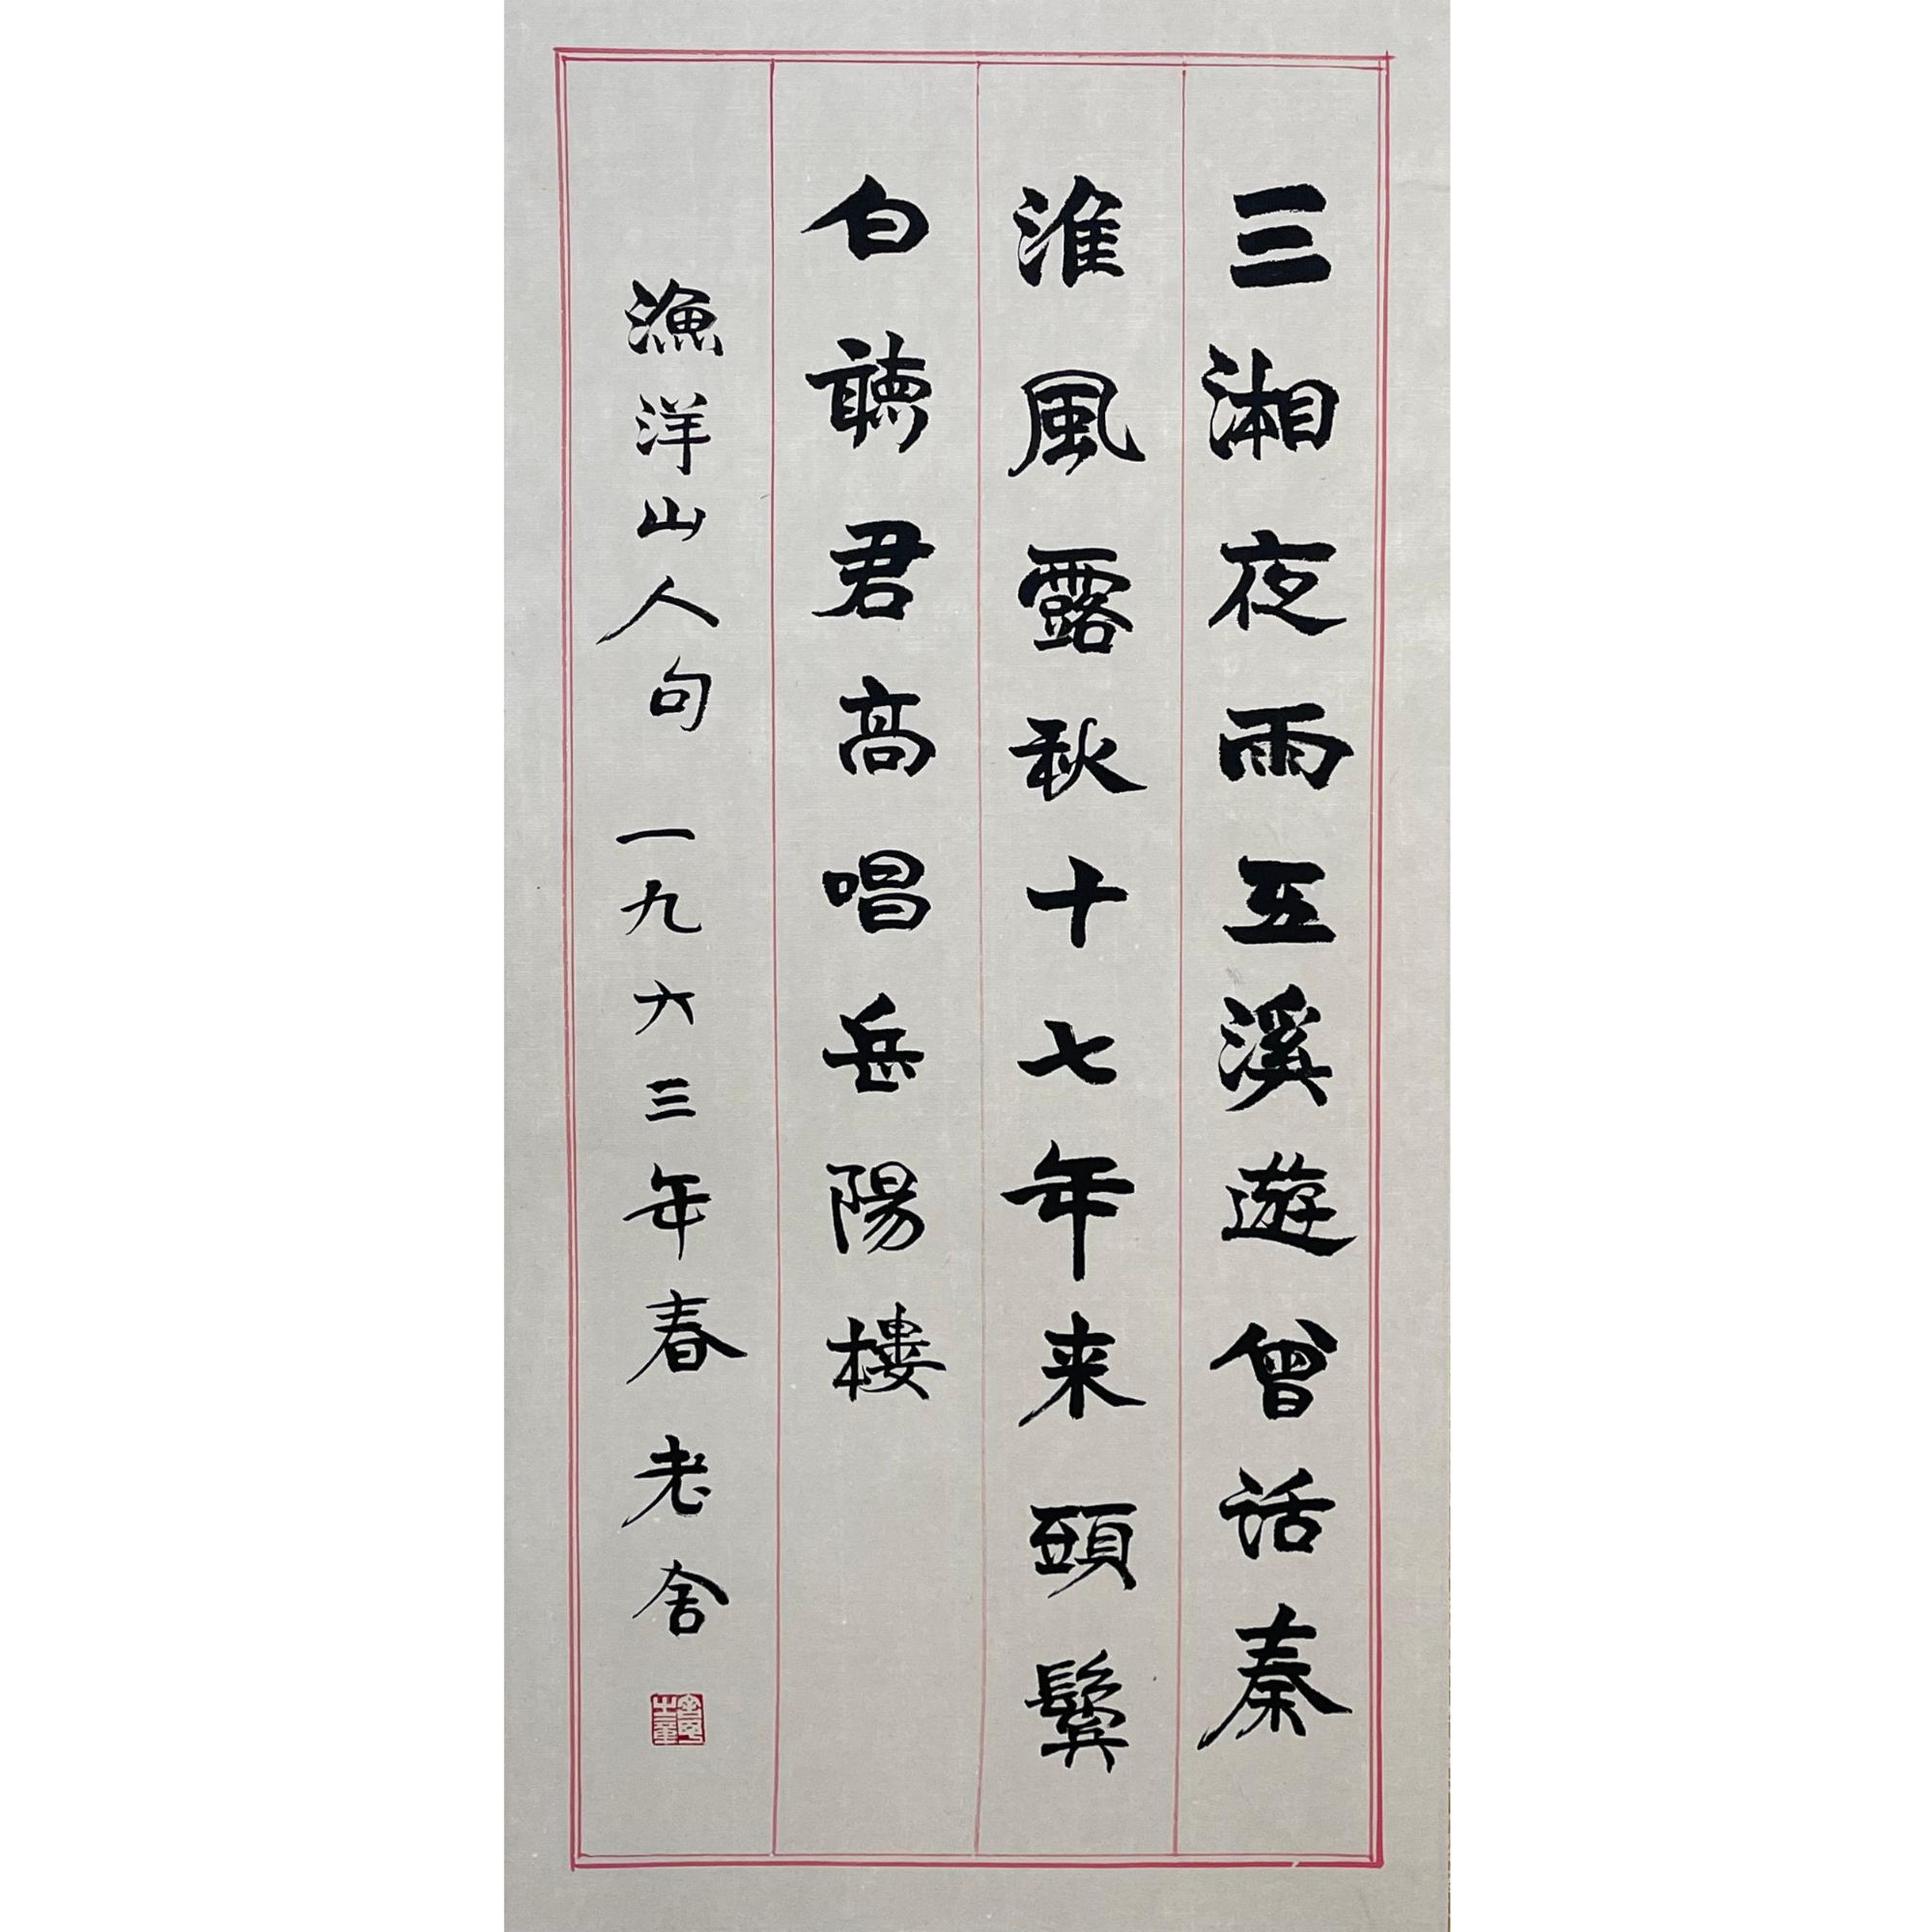 三湘夜雨五溪遊曾话秦
淮風露秋十七年来頭鬢
白聽君高唱岳陽樓
漁洋山人句 一九六三年春老舍